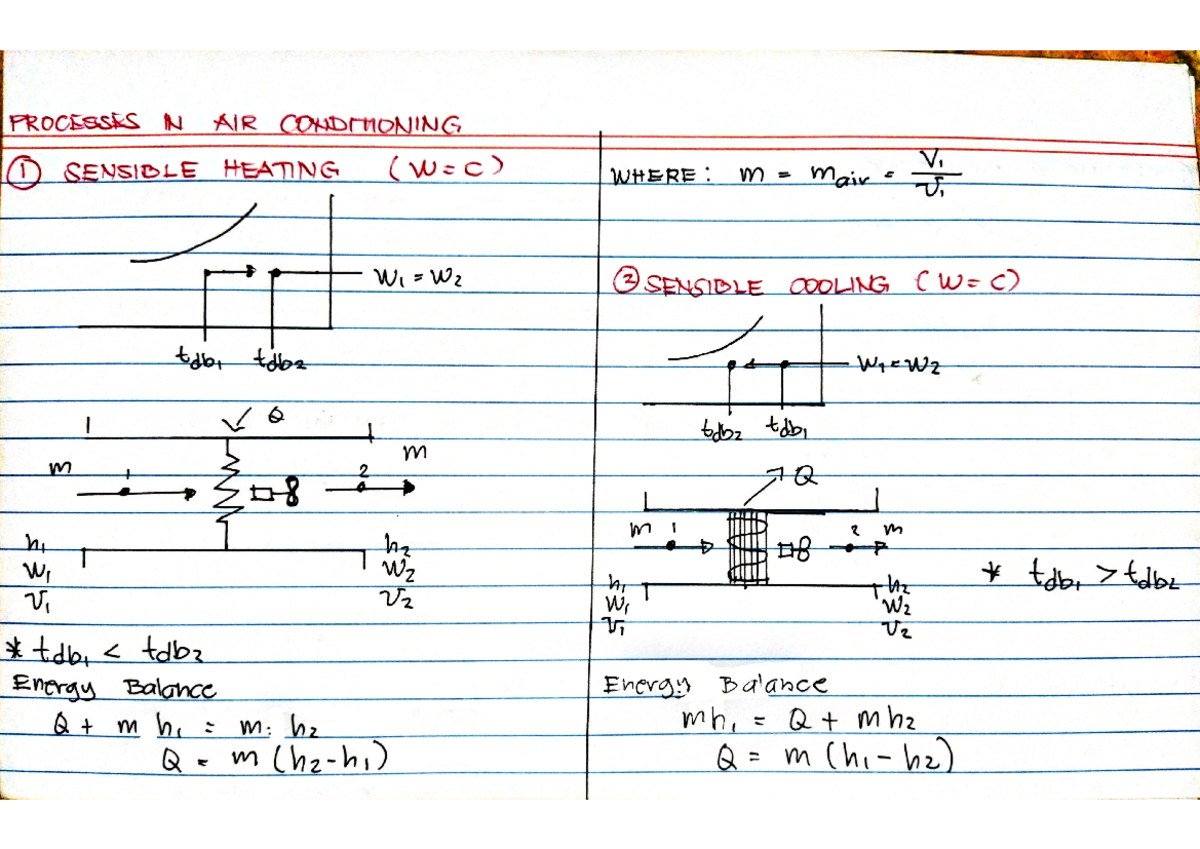 PROCESSES IN AIR CONDITIONING
① SENSIBLE HEATING (W=C)
W₁ = W₂
tdb₁ tdb₂
Q
m 1 2 m
h₁ h₂
W₁ W₂
υ₁ υ₂
* tdb₁ < tdb₂
Energy Balance
Q + m h₁ = m h₂
Q = m (h₂-h₁)
WHERE: m = mair = V₁/υ₁
② SENSIBLE COOLING (W=C)
W₁ = W₂
tdb₂ tdb₁
Q
m 1 2 m
h₁ h₂
W₁ W₂
υ₁ υ₂
* tdb₁ > tdb₂
Energy Balance
mh₁ = Q + mh₂
Q = m (h₁-h₂)